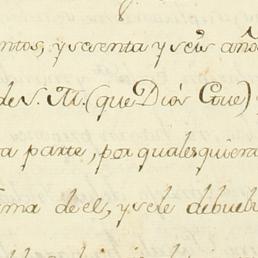 ntos, y sesenta y seis año
de S. M. (que Dios Gue)
a parte, por qualesquiera
ma de el, y se le debuel